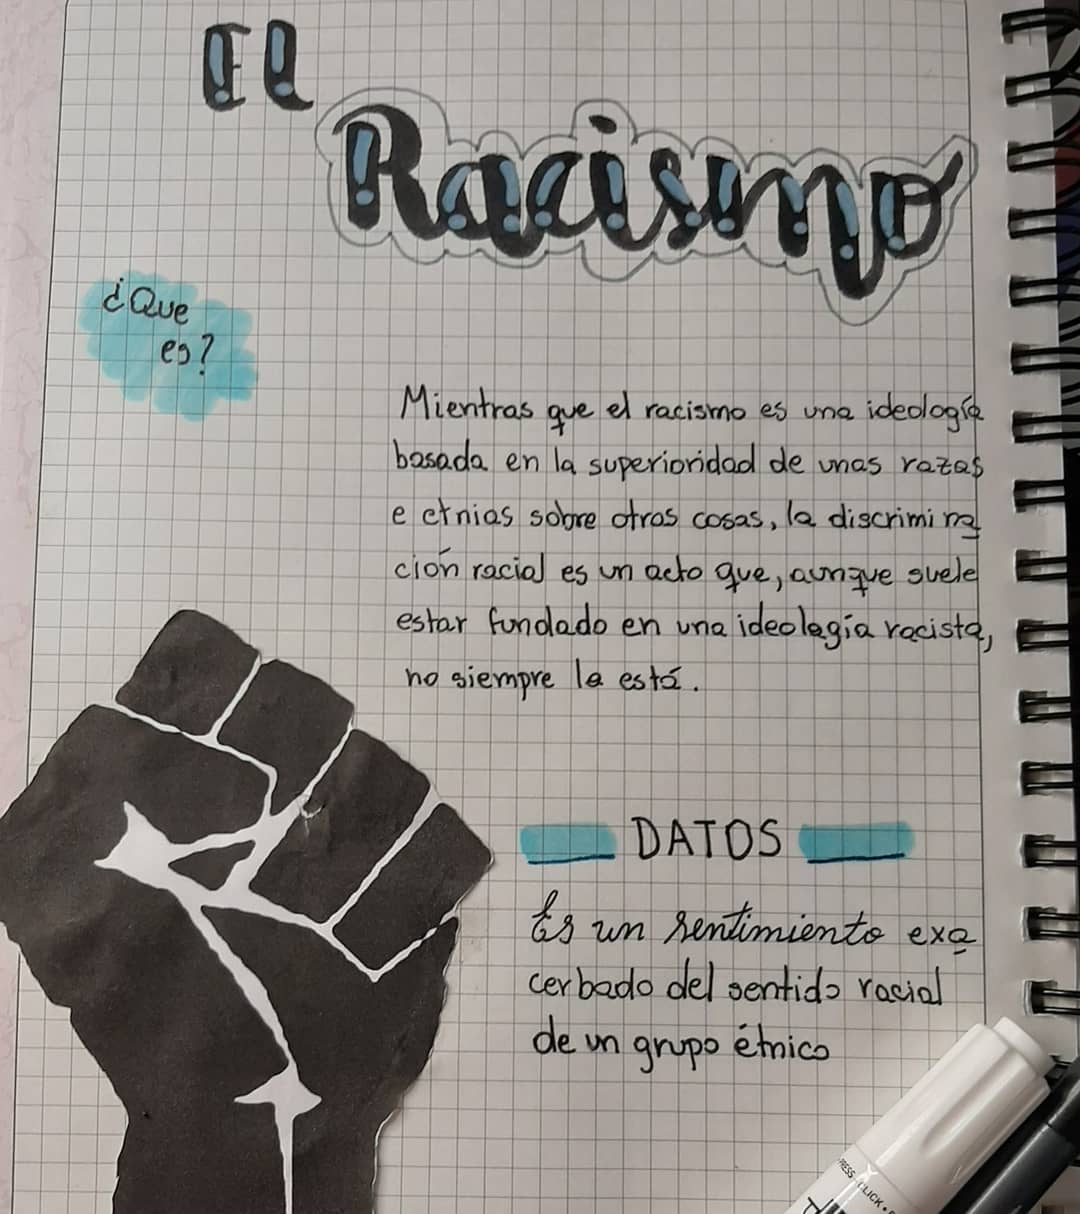 El
Racismo
¿Que
es?
Mientras que el racismo es una ideología
basada en la superioridad de unas razas
e etnias sobre otras cosas, la discrimina
ción racial es un acto que, aunque suele
estar fundado en una ideologia racista,
no siempre la está.
DATOS
Es un sentimiento exa
cerbado del sentido racial
de un grupo étnico
PRESS CLICK